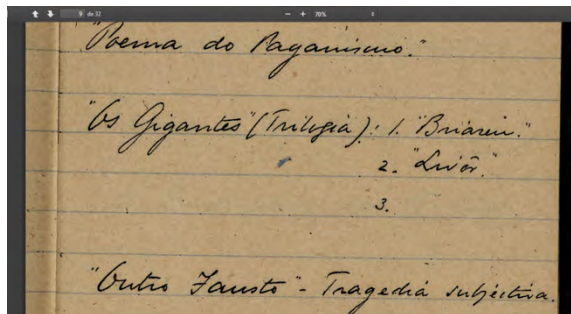 9 de 32 − + 70%
Poema do Paganismo."
"Os Gigantes" (Trilogia): 1. "Briareu."
2. "Livôr."
3.
"Outro Fausto" - Tragedia subjectiva.